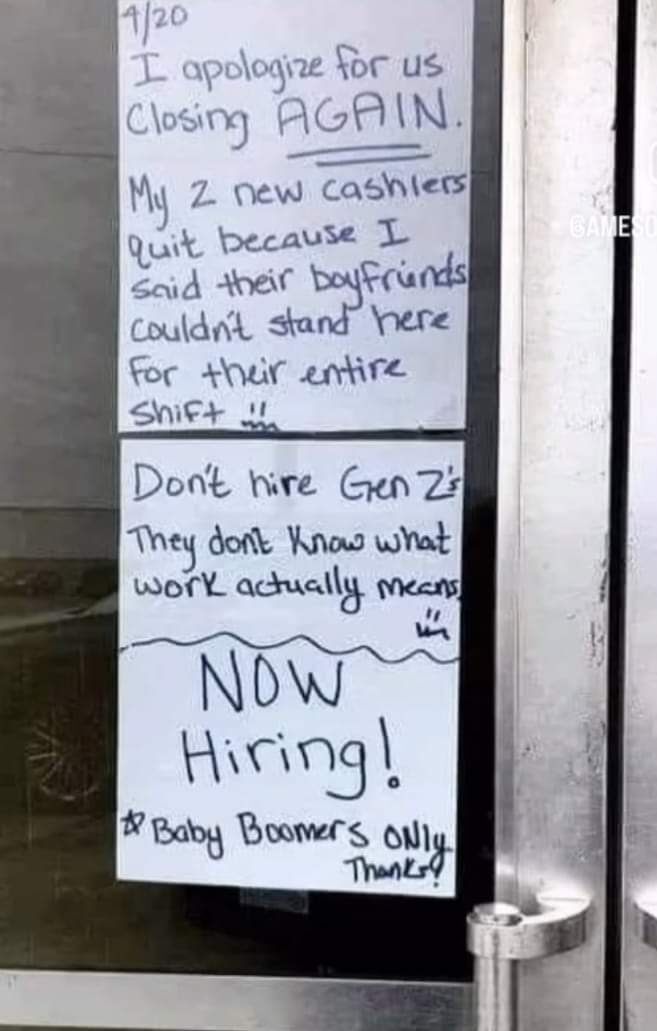 4/20
I apologize for us
Closing AGAIN.
My 2 new cashiers
quit because I
said their boyfriends
couldn't stand here
for their entire
shift
Don't hire Gen Z's
They don't know what
work actually means
NOW
Hiring!
☆ Baby Boomers ONLY
Thanks!